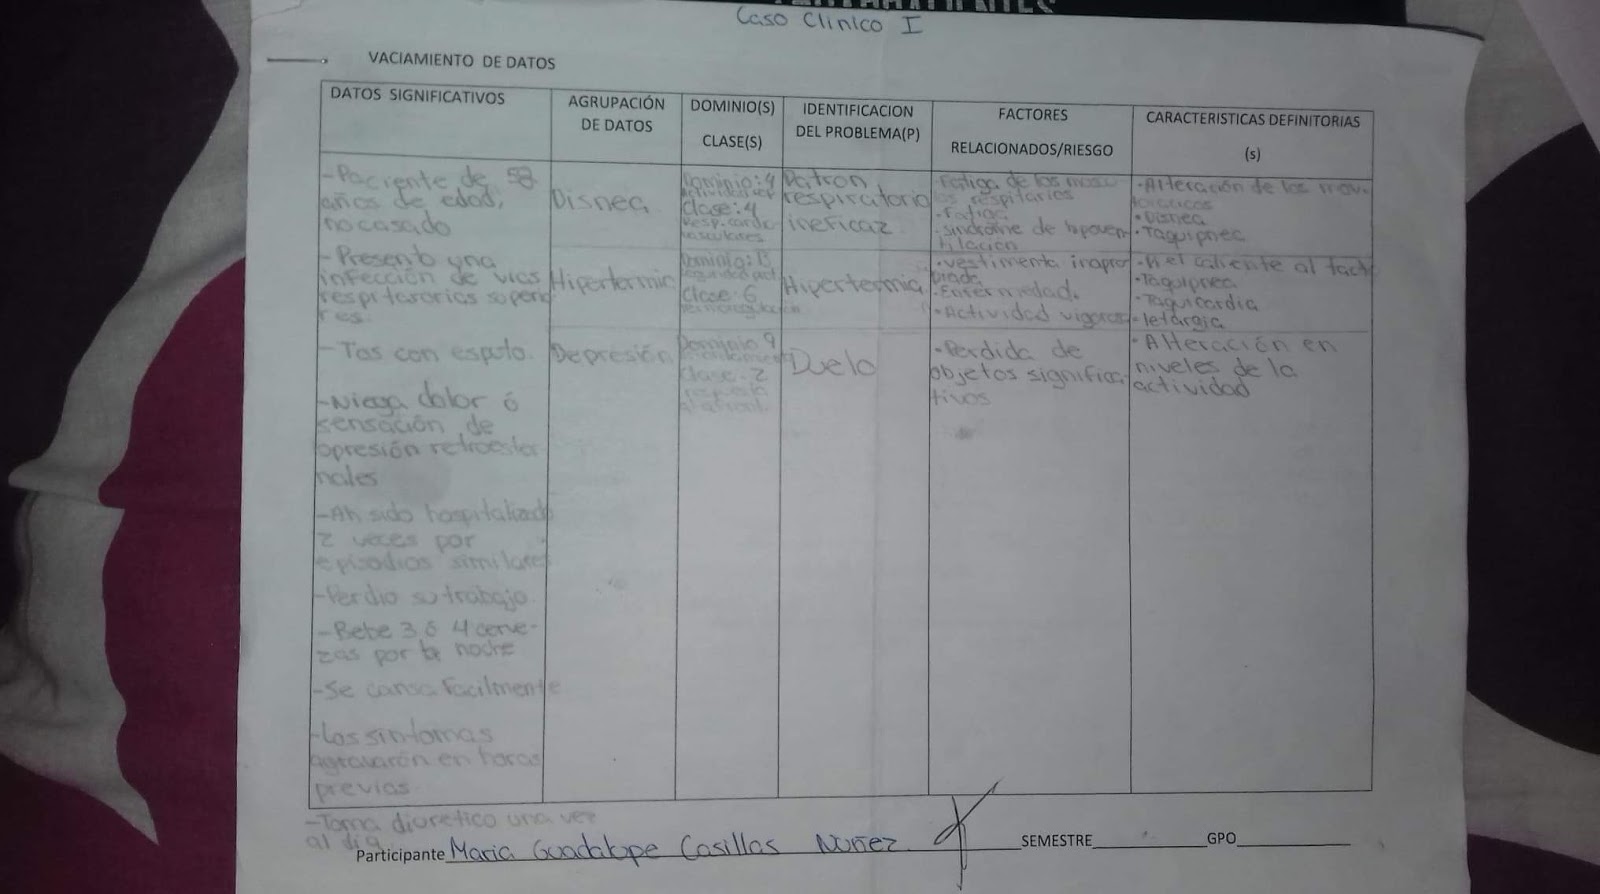 Caso Clinico I
VACIAMIENTO DE DATOS
DATOS SIGNIFICATIVOS
AGRUPACIÓN
DE DATOS
DOMINIO(S)
CLASE(S)
IDENTIFICACION
DEL PROBLEMA(P)
FACTORES
RELACIONADOS/RIESGO
CARACTERISTICAS DEFINITORIAS
(s)
-Paciente de
años de edad,
no casado
-Presento una
infección de vias
respitasorias superio
res.
-Tos con esputo.
-Niega dolor ó
sensación de
opresión retroester
nales
-Ah sido hospitalizado
2 veces por
episodios similares
-Perdio su trabajo
-Bebe 3 ó 4 cerve-
zas por la noche
-Se cansa facilmente
-Los sintomas
agravarón en horas
previas
-Toma diuretico una vez
al dia
Disnea
Hipertermia
Depresión
Dominio: 4
Clase: 4
Resp. cardio
vasculares
Dominio:
Clase: 6
Dominio 9
Clase: 2
respuesta
Patron
respiratorio
ineficaz
Hipertermia
Duelo
·Fatiga de los muscu
los respitarios
·Fatiga
·Sindrome de hipoven
tilación
·Vestimenta inapro
piada
·Enfermedad.
·Actividad vigorosa
·Perdida de
objetos significa
tivos
·Alteración de los mov.
·Disnea
·Taquipnea
·Piel caliente al tacto
·Taquipnea
·Taquicardia
·letargia
·Alteración en
niveles de la
actividad
Participante Maria Guadalupe Casillas Nuñez SEMESTRE GPO